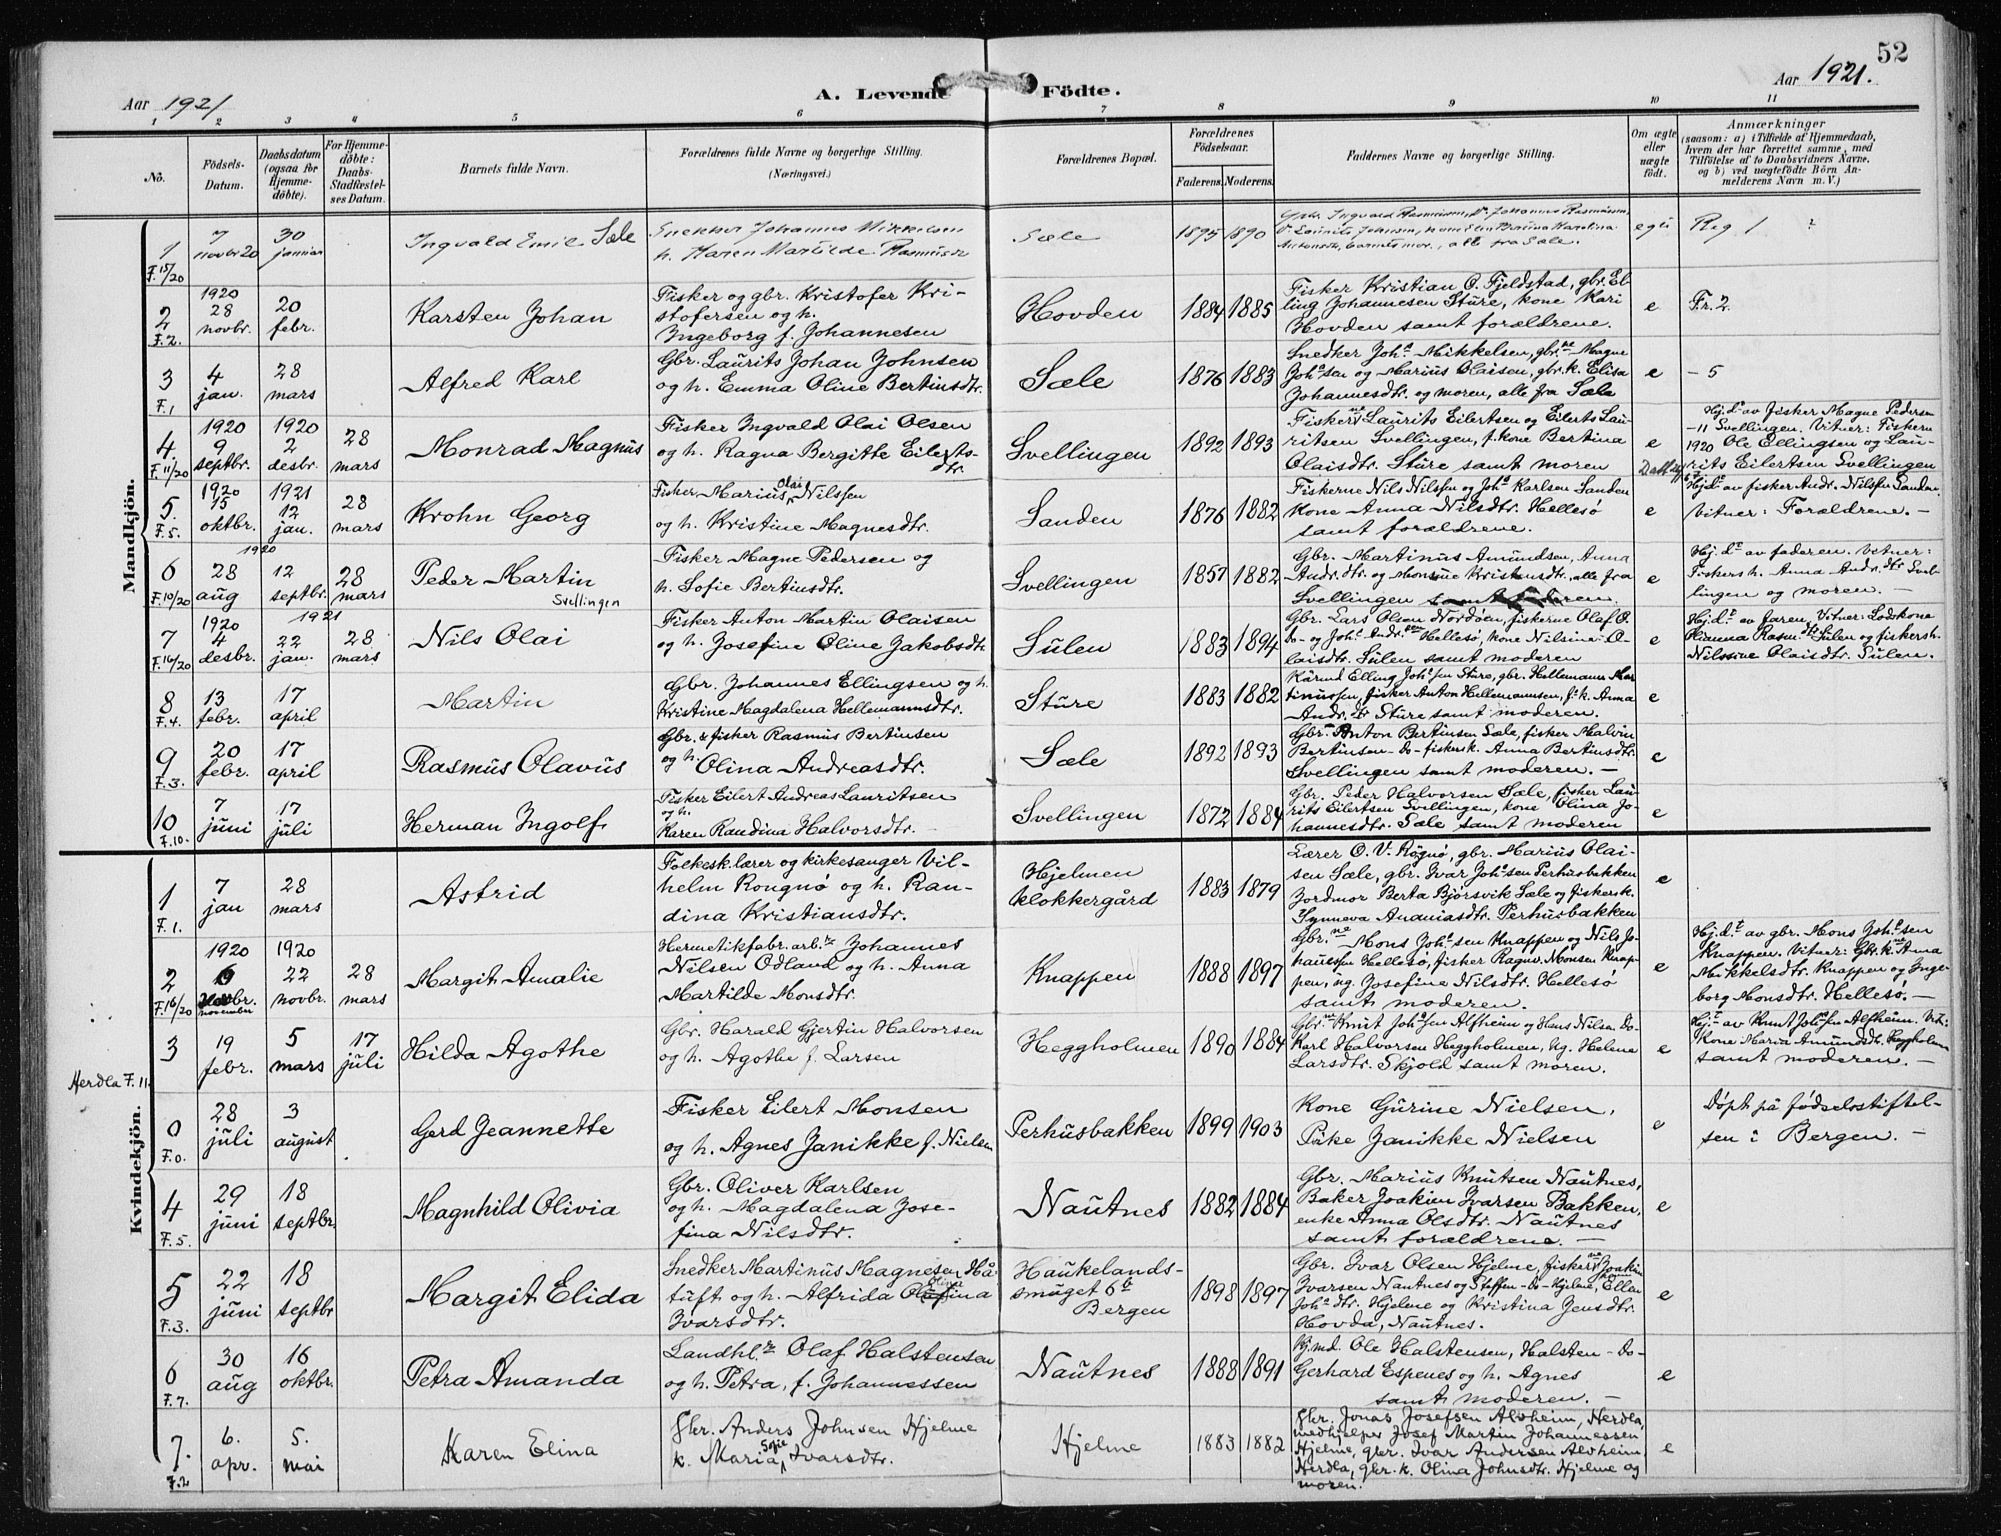 52
Aar 1921
A. Levende Födte.
Aar 1921.
1 2 3 4 5 6 7 8 9 10 11
No.
Födsels-
Datum.
Daabsdatum
(ogsaa for
Hjemme-
döbte).
For Hjemme-
döbte:
Daabs-
Stadfæstel-
ses Datum.
Barnets fulde Navn.
Forældrenes fulde Navne og borgerlige Stilling.
(Næringsvei.)
Forældrenes Bopæl.
Forældrenes
Födselsaar.
Faderens. Moderens.
Faddernes Navne og borgerlige Stilling.
Om ægte
eller
uægte
födt.
Anmærkninger
(saasom: a) i Tilfælde af Hjemmedaab,
hvem der har forrettet samme, med
Tilföielse af to Daabsvidners Navne.
og b) ved uægtefödte Börn An-
melderens Navn m. V.)
Mandkjön.
1
F. 15/20
7
novbr 20
30
januar
Ingvald Emil Sæle
Snekker Johannes Mikkelsen
h. Karen Martilde Rasmusdr
Sæle
1895 1890
Gbr. Ingvald Rasmussen, Johannes Rasmussen,
alle fra Sæle.
egte
Reg 1
2
F. 2.
1920
28
novbr.
20
febr.
Karsten Johan
Fisker og gbr. Kristofer Kri-
stofersen og h.
Ingeborg f. Johannesen
Hovden
1884 1885
Fisker Kristian O. Fjeldstad, gbr. El-
ling Johannesen Stüre, kone Kari
Hovden samt forældrene.
e
Fr. 2.
3
F. 1
4
jan.
28
mars
Alfred Karl
Gbr. Laurits Johan Johnsen
og h. Emma Oline Bertinsdtr.
Sæle
1876 1883
Snedker Joh.s Mikkelsen, gbr.ne Magne
Joh.sen og Marius Olaisen, gbr.k. Elisa
Johannesdtr. og moren, alle fra Sæle
e
- 5
4.
F. 11/20
1920
9
septbr.
1920
2
desbr.
28
mars
Monrad Magnus
Fisker Ingvald Olai Olsen
og h. Ragna Bergitte Eilerts-
dtr.
Svellingen
1892 1893
Fiskerne Laurits Eilertsen og Eilerts Lau-
ritsen Svellingen, f.kone Bertina
Olaisdtr. Stüre samt moren
e
Hj.dt av fisker Magne Pedersen
-11 Svellingen. Vitner: Fiskern
1920 Ole Ellingsen og Lau-
rits Eilertsen Svellingen
5.
F. 5.
1920
15
oktbr.
1921
12
jan.
28
mars
Krohn Georg
Fisker Marius Olai Nilssen
og h. Kristine Magnesdtr.
Sanden
1876 1882
Fiskerne Nils Nilssen og Joh.s Karlsen Sanden
kone Anna Nilsdtr. Hellesø
samt forældrene.
e
Hj.dt av fisker Andr. Nilssen Sanden.
Vitner: Forældrene. -
6
F. 10/20
1920
28
aug
12
septbr.
28
mars
Peder Martin
Svellingen
Fisker Magne Pedersen og
h. Sofie Bertinsdtr.
Svellingen
1857 1882
Gbr. Martinus Amundsen, Anna
Andr.dtr. og Monsine Kristensdtr., alle fra
Svellingen
e
Hj.dt av faderen. Vitner:
Fiskersh. Anna Andr.dtr Svel-
lingen og moren. -
7
F. 16/20
1920
4
desbr.
1921
22
jan.
28
mars
Nils Olai
Fisker Anton Martin Olaisen
og h. Josefine Oline Jakobsdtr.
Sülen
1883 1894
Gbr. Lars Olsen Nordöen, fiskerne Olaf O.
do- og Joh.s Andr.sen Hellesø, kone Nilsine O-
laisdtr. Sülen samt moderen
e
Hj.dt av faren. Vitner: Lodskone
Olianna Rasm.dtr Sülen og fiskersh.
Nilssine Olaisdtr. Sülen.
8
F. 4.
13
febr.
17
april
Martin
Gbr. Johannes Ellingsen og h.
Kristine Magdalena Hellemannsdtr.
Stüre
1883 1882
Kårmd Elling Joh.sen Stüre, gbr. Hellemann Mar-
tinussen, fisker Anton Hellemannsen, f.k. Anna
Andr.dtr Stüre samt moderen.
e
9
F. 3.
20
febr.
17
april
Rasmus Olavus
Gbr. & fisker Rasmus Bertinsen
og h. Olina Andreasdtr.
Sæle
1892 1893
Gbr. Anton Bertinsen Sæle, fisker Malvin
Bertinsen - do - fiskersk. Anna Bertinsdtr.
Svellingen samt moderen. -
e
10
F. 10.
7
juni
17
juli
Herman Ingolf
Fisker Eilert Andreas Lauritsen
og h.
Karen Randina Halvorsdtr.
Svellingen
1872 1884
Gbr. Peder Halvorsen Sæle, fisker Lau-
rits Eilertsen Svellingen, kone Olina Jo-
hannesdtr. Sæle samt moderen
e
Kvindekjön.
1
F. 1.
7
jan
28
mars
Astrid
Folkesk.lærer og kirkesanger Vil-
helm Rongnø og h. Ran-
dina Kristiansdtr.
Hjelmen
klokkergård
1883 1879
Lærer O. V. Rognø, gbr. Marius Olai-
sen Sæle, gbr. Ivar Joh.sen Perhusbakken
Jordmor Berta Bjørsvik Sæle og fiskersk.
Synneva Ananiasdtr. Perhusbakken
e
2
F. 16/20
1920
6
november
1920
22
novbr.
28
mars
Margit Amalie
Hermetikfabr. arb.r Johannes
Nilsen Odland og h. Anna
Martilde Monsdtr.
Knappen
1888 1897
Gbr.ne Mons Joh.sen Knappen og Nils Jo-
hanessen Hellesø, fisker Ragnv. Monsen Knap-
pen, ug. Josefine Nilsdtr. Hellesø
samt moderen.
e
Hj.dt av gbr. Mons Joh.sen
Knappen. Vitner: Gbr.k. Anna
Mikkelsdtr. Knappen og Inge-
borg Monsdtr. Hellesø. -
3
Herdla F. 11.
19
febr.
5
mars
17
juli
Hilda Agothe
Gbr. Harald Gjertin Halvorsen
og h. Agothe f. Larsen
Heggholmen
1890 1884
Gbr.ne Knut Joh.sen Alfheim og Hans Nilsen do.
Karl Halvorsen Heggholmen, ug. Helene
Larsdtr. Skjold samt moren.
e
Hj.dt av Knut Joh.sen Alfheim. Vit:
Kone Maria Amundsdtr. Heggholmen
samt moderen. -
0
F. 0.
28
juli
3
august
Gerd Jeannette
Fisker Eilert Monsen
og h. Agnes Janikke f. Nielsen
Perhusbakken
1899 1903
Kone Gürine Nielsen,
Pike Janikke Nielsen
e
Døpt på fødselsstiftel-
sen i Bergen. -
4
F. 5.
29
juni
18
septbr.
Magnhild Olivia
Gbr. Oliver Karlsen
og h. Magdalena Jose-
fina Nilsdtr.
Nautnes
1882 1884
Gbr. Marius Knutsen Nautnes,
Baker Joakim Ivarsen Bakken,
enke Anna Olsdtr. Nautnes
samt forældrene. -
e
5
F. 3.
22
juni
18
septbr
Margit Elida
Snedker Martinus Magnesen Hå-
tuft og h. Alfrida Olina
Ivarsdtr.
Haukelands-
smuget 6b
Bergen
1898 1897
Gbr. Ivar Olsen Hjelme, fiskerne Joakim
Ivarsen Nautnes og Steffen - do - Hjelme, Ellen
Joh.sdtr. Hjelme og Kristina Jensdtr.
Hovda, Nautnes.
e
6
F. 7.
30
aug
16
oktbr.
Petra Amanda
Landhl.r Olaf Halstensen
og h. Petra, f. Johannessen
Nautnes
1888 1891
Kj.md. Ole Halstensen, Halsten - do-
Gerhard Espenes og h. Agnes
samt moderen. -
e
7.
F. 2
6.
apr.
5.
mai
Karen Elina
Gbr. Anders Johnsen Hjelme
k. Maria Sofie Ivarsdtr.
Hjelme
1883 1882
Gbr. Jonas Josefsen Alvheim, Herdla,
medhjelper Josef Martin Johannessen
Hjelme, gbr. Ivar Andersen Alvheim
Herdla, gbr.k. Olina Johnsdtr. Hjelme og
moren.
e